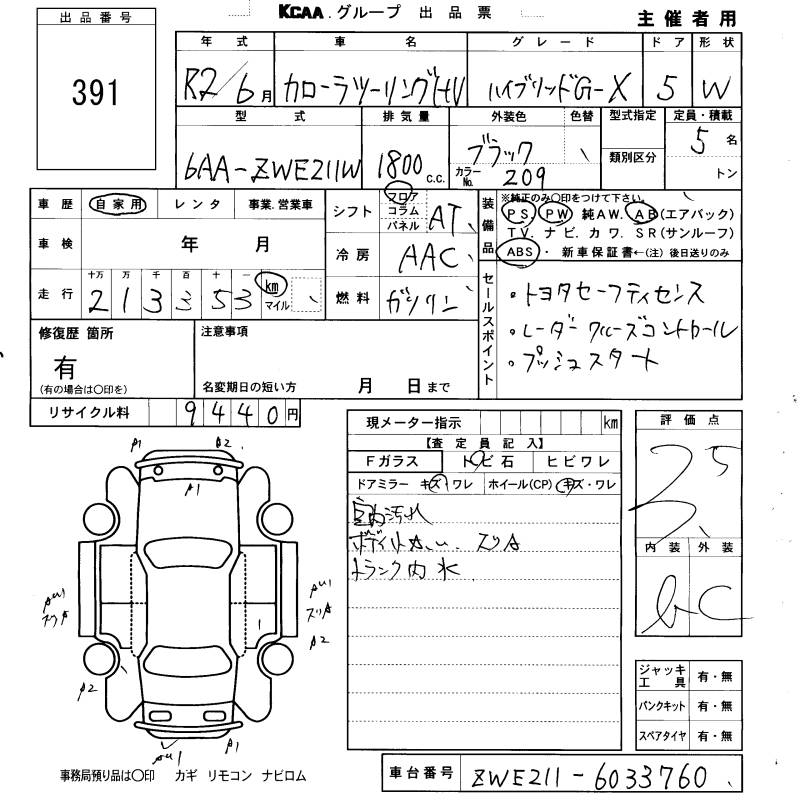 KCAA.グループ 出品票
主催者用
出品番号
391
年式 車名 グレード ドア 形状
R2/6月 カローラツーリングHV ハイブリッドG-X 5 W
型式 排気量 外装色 色替 型式指定 定員・積載
6AA-ZWE211W 1800c.c. ブラック 5名
カラーNo. 209 類別区分 トン
車歴 自家用 レンタ 事業.営業車
車検 年 月
走行 十万 万 千 百 十 一
213353 km マイル
シフト フロア コラム パネル AT
冷房 AAC
燃料 ガソリン
装備品 ※純正のみ○印をつけて下さい。
PS. PW 純AW. AB(エアバック)
TV. ナビ. カワ. SR(サンルーフ)
ABS・ 新車保証書←(注) 後日送りのみ
セールスポイント
・トヨタセーフティセンス
・レーダークルーズコントロール
・プッシュスタート
修復歴 箇所 注意事項
有
(有の場合は○印を) 名変期日の短い方 月 日まで
リサイクル料 9440円
現メーター指示 km
【査定員記入】
Fガラス トビ石 ヒビワレ
ドアミラー キズ・ワレ ホイール(CP) キズ・ワレ
室内汚れ
トランク内 水
評価点
3.5
内装 外装
b C
A1 A2
A1
AU1 AU1
スリA スリA
A2
A2
AU1 A1
ジャッキ工具 有・無
パンクキット 有・無
スペアタイヤ 有・無
事務局預り品は○印 カギ リモコン ナビロム
車台番号 ZWE211-6033760